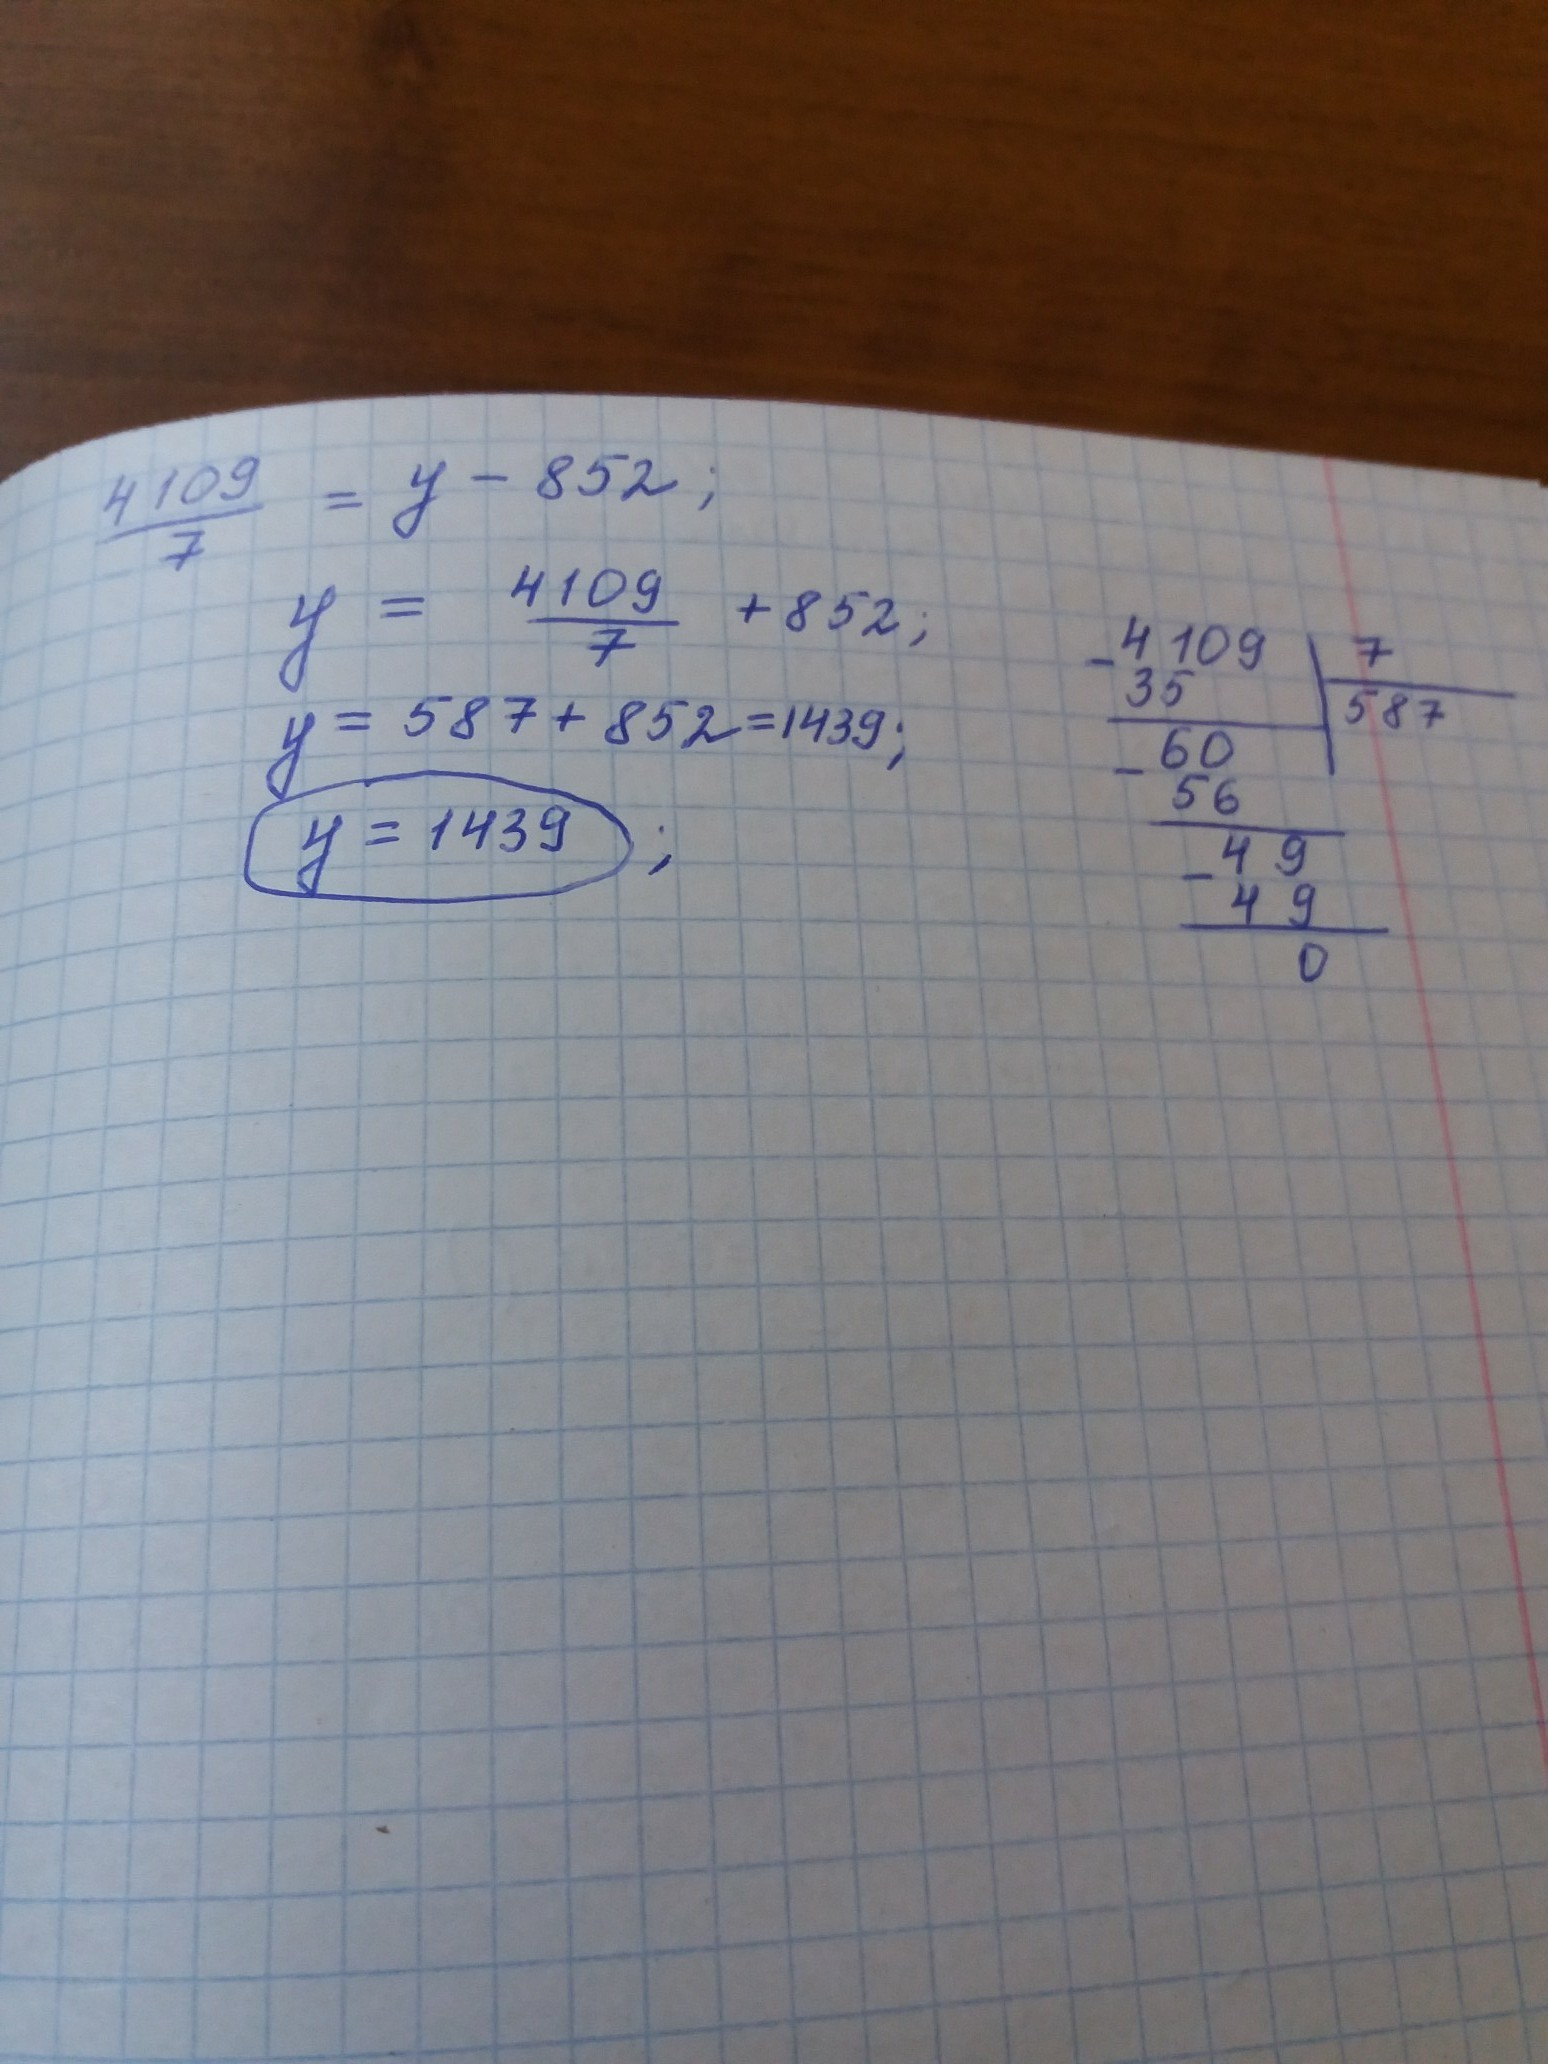 4109/7 = y - 852;
y = 4109/7 + 852;
y = 587 + 852 = 1439;
y = 1439;
- 4109 | 7
35 | 587
- 60
56
- 49
49
0